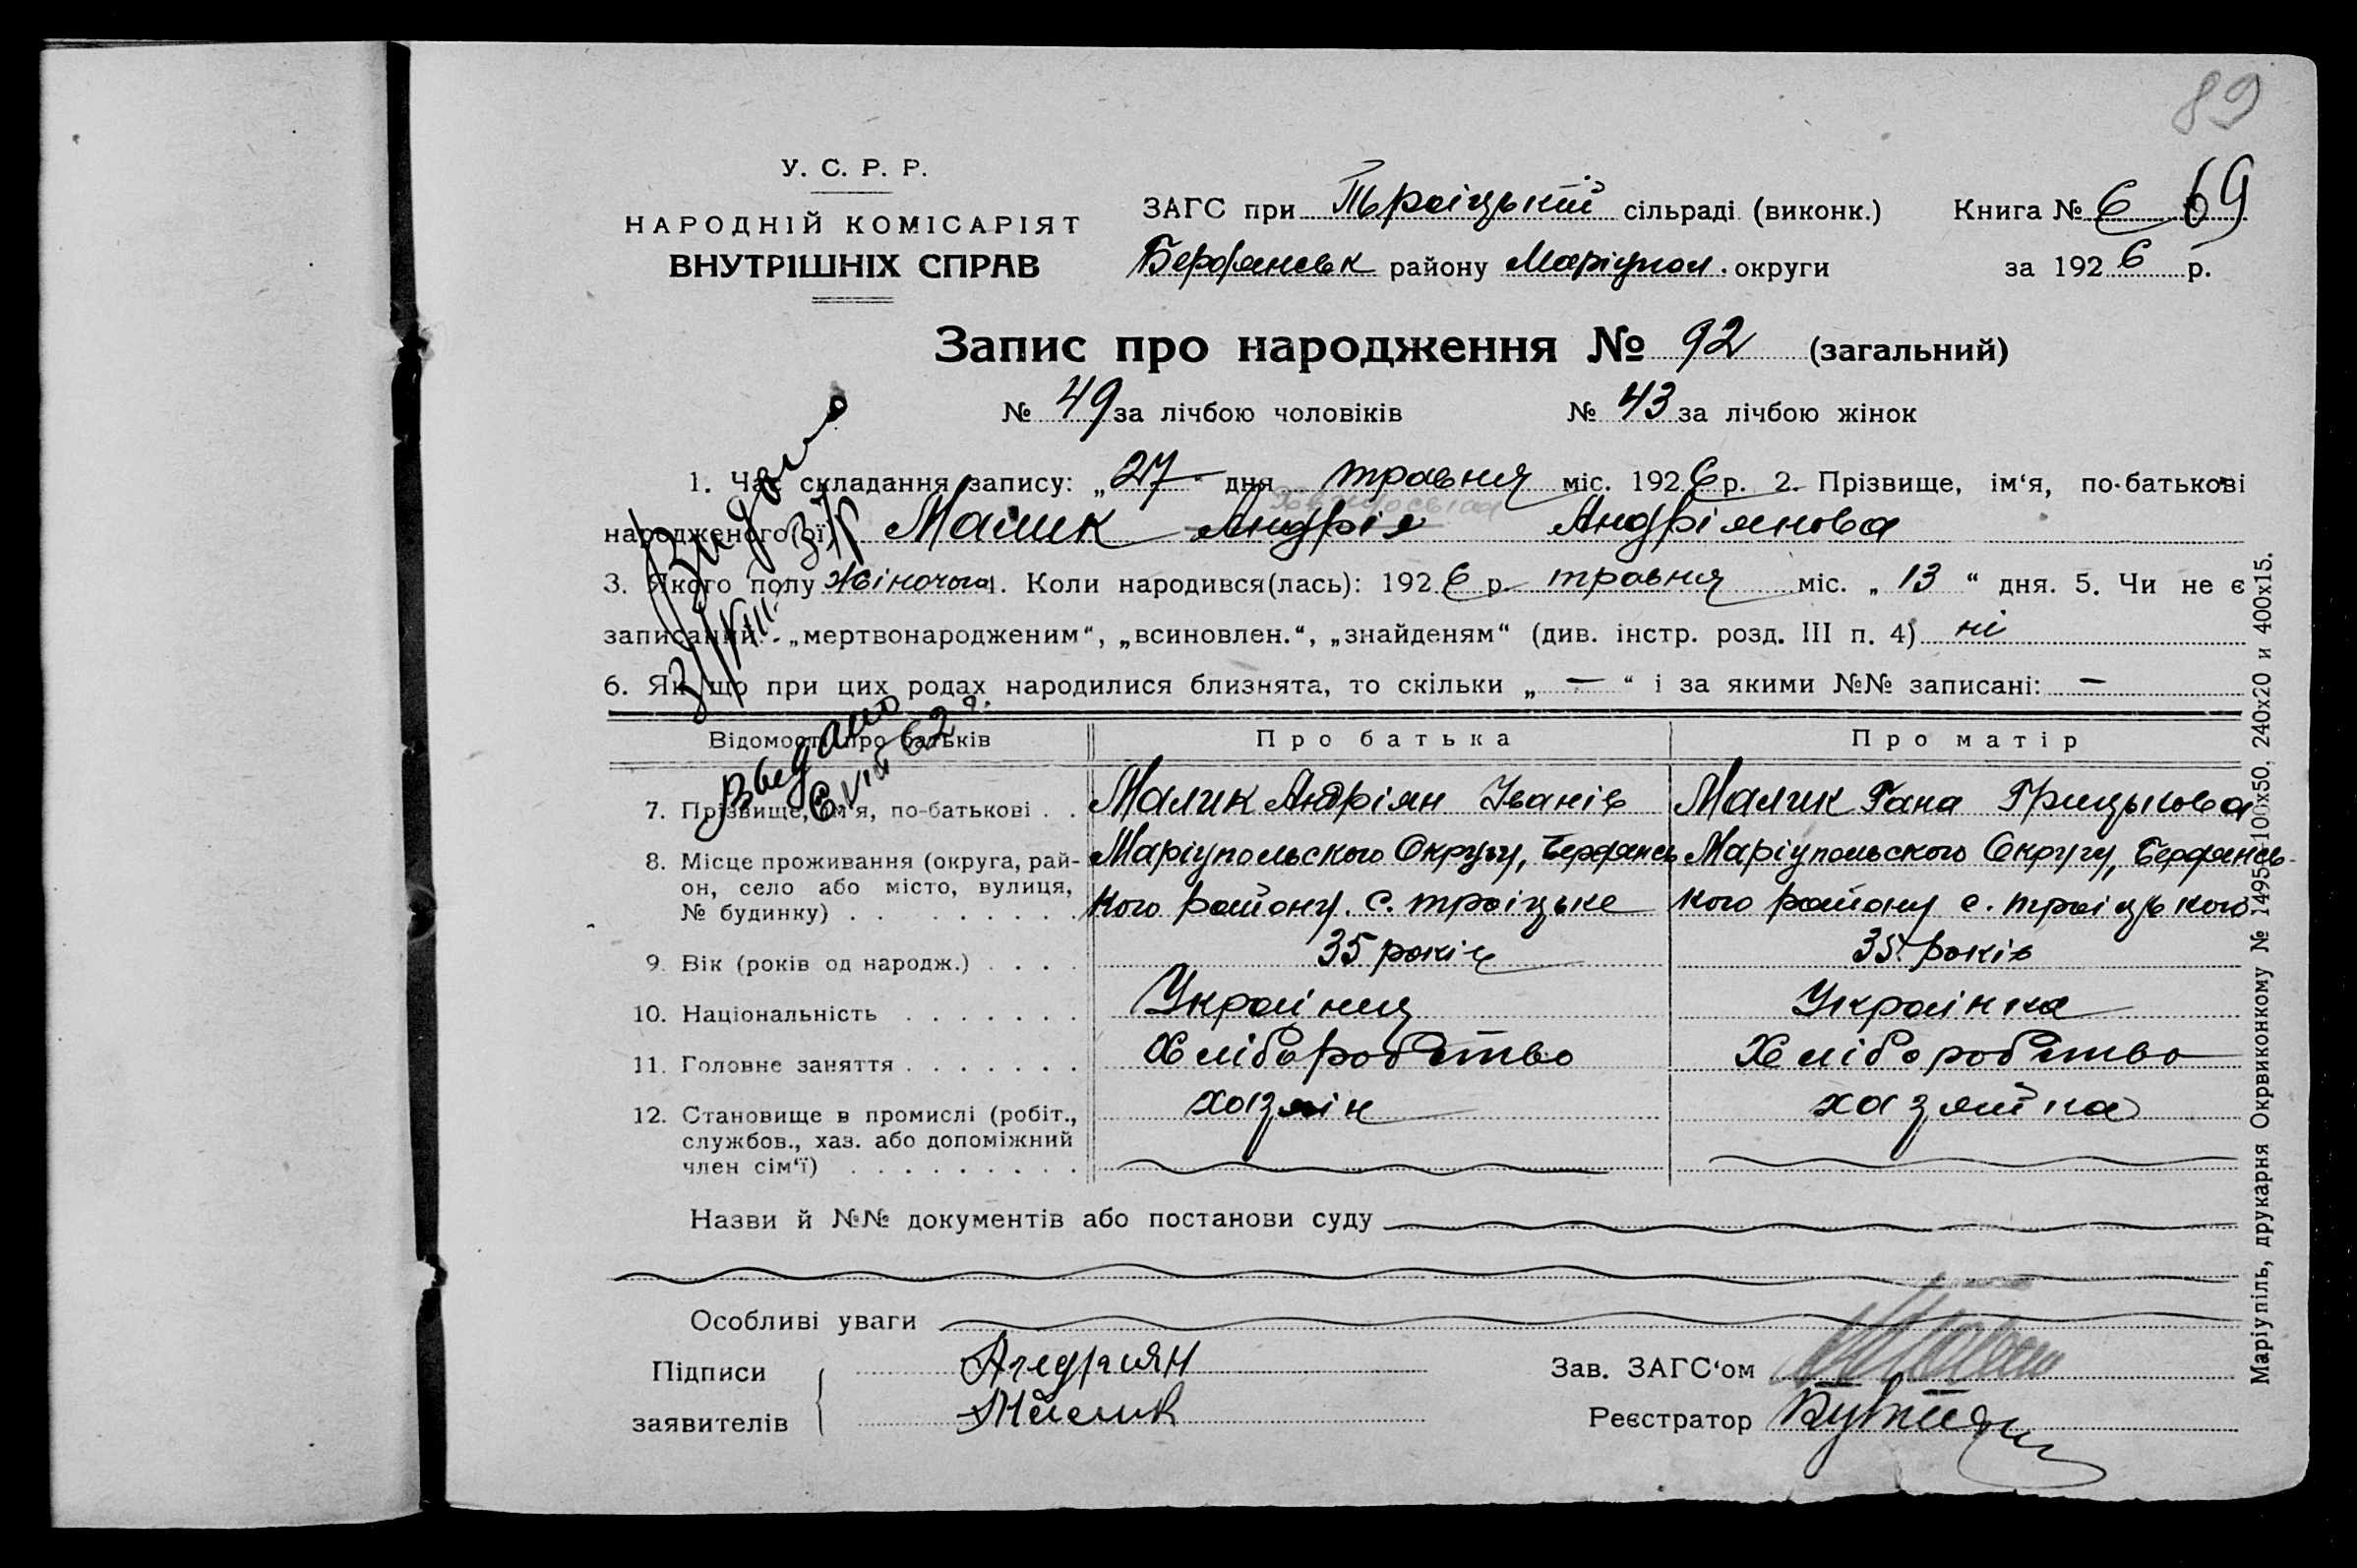 89
У. С. Р. Р.
НАРОДНІЙ КОМІСАРІЯТ
ВНУТРІШНІХ СПРАВ
ЗАГС при Троіцькій сільраді (виконк.) Книга № 6 69
Бердянськ району Маріупол. округи за 1926 р.
Запис про народження № 92 (загальний)
№ 49 за лічбою чоловіків № 43 за лічбою жінок
1. Час складання запису: „27“ дня травня міс. 1926 р. 2. Прізвище, ім‘я, по-батькові
народженого(ої) Малик Андрія Андріянова
3. Якого полу жіночого 4. Коли народився(лась): 1926 р. травня міс. „13“ дня. 5. Чи не є
записаний - „мертвонародженим“, „всиновлен.“, „знайденям“ (див. інстр. розд. III п. 4) ні
6. Якщо при цих родах народилися близнята, то скільки „ — “ і за якими №№ записані: —
Видано
Выдано
62 г.
Відомості про батьків Про батька Про матір
7. Прізвище, ім‘я, по-батькові . . Малик Андріян Іванів Малик Гана Грицькова
8. Місце проживання (округа, рай- Маріупольского Округу, Бердянсь Маріупольского Округу, Бердянсь-
он, село або місто, вулиця, кого району. с. Троіцьке кого району с. Троіцького
№ будинку) . . . . . . . . .
9. Вік (років од народж.) . . . . 35 років 35 років
10. Національність . . . . . . . Украінец Украінка
11. Головне заняття . . . . . . . Хліборобство Хліборобство
12. Становище в промислі (робіт., хозяін хазяйка
службов., хаз. або допоміжний
член сім‘ї) . . . . . . . . .
Назви й №№ документів або постанови суду
Особливі уваги
Підписи Андриян Зав. ЗАГС‘ом
заявителів Малик Реєстратор
Маріупіль, друкарня Окрвиконкому № 1495-100х50, 240х20 и 400х15.